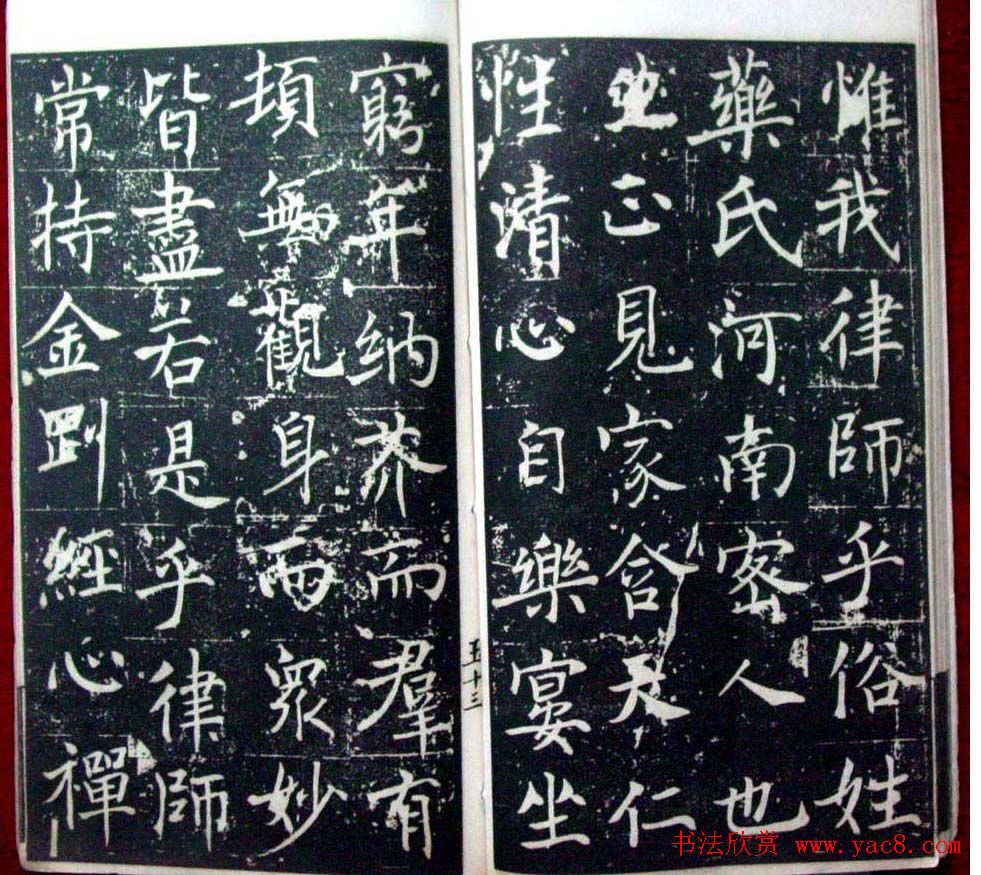 惟我律師乎俗姓
藥氏河南密人也
生正見家含天仁
性清心自樂宴坐
五十三
窮年納芥而羣有
頓無觀身而眾妙
皆盡若是乎律師
常持金剛經心禪
书法欣赏 www.yac8.com